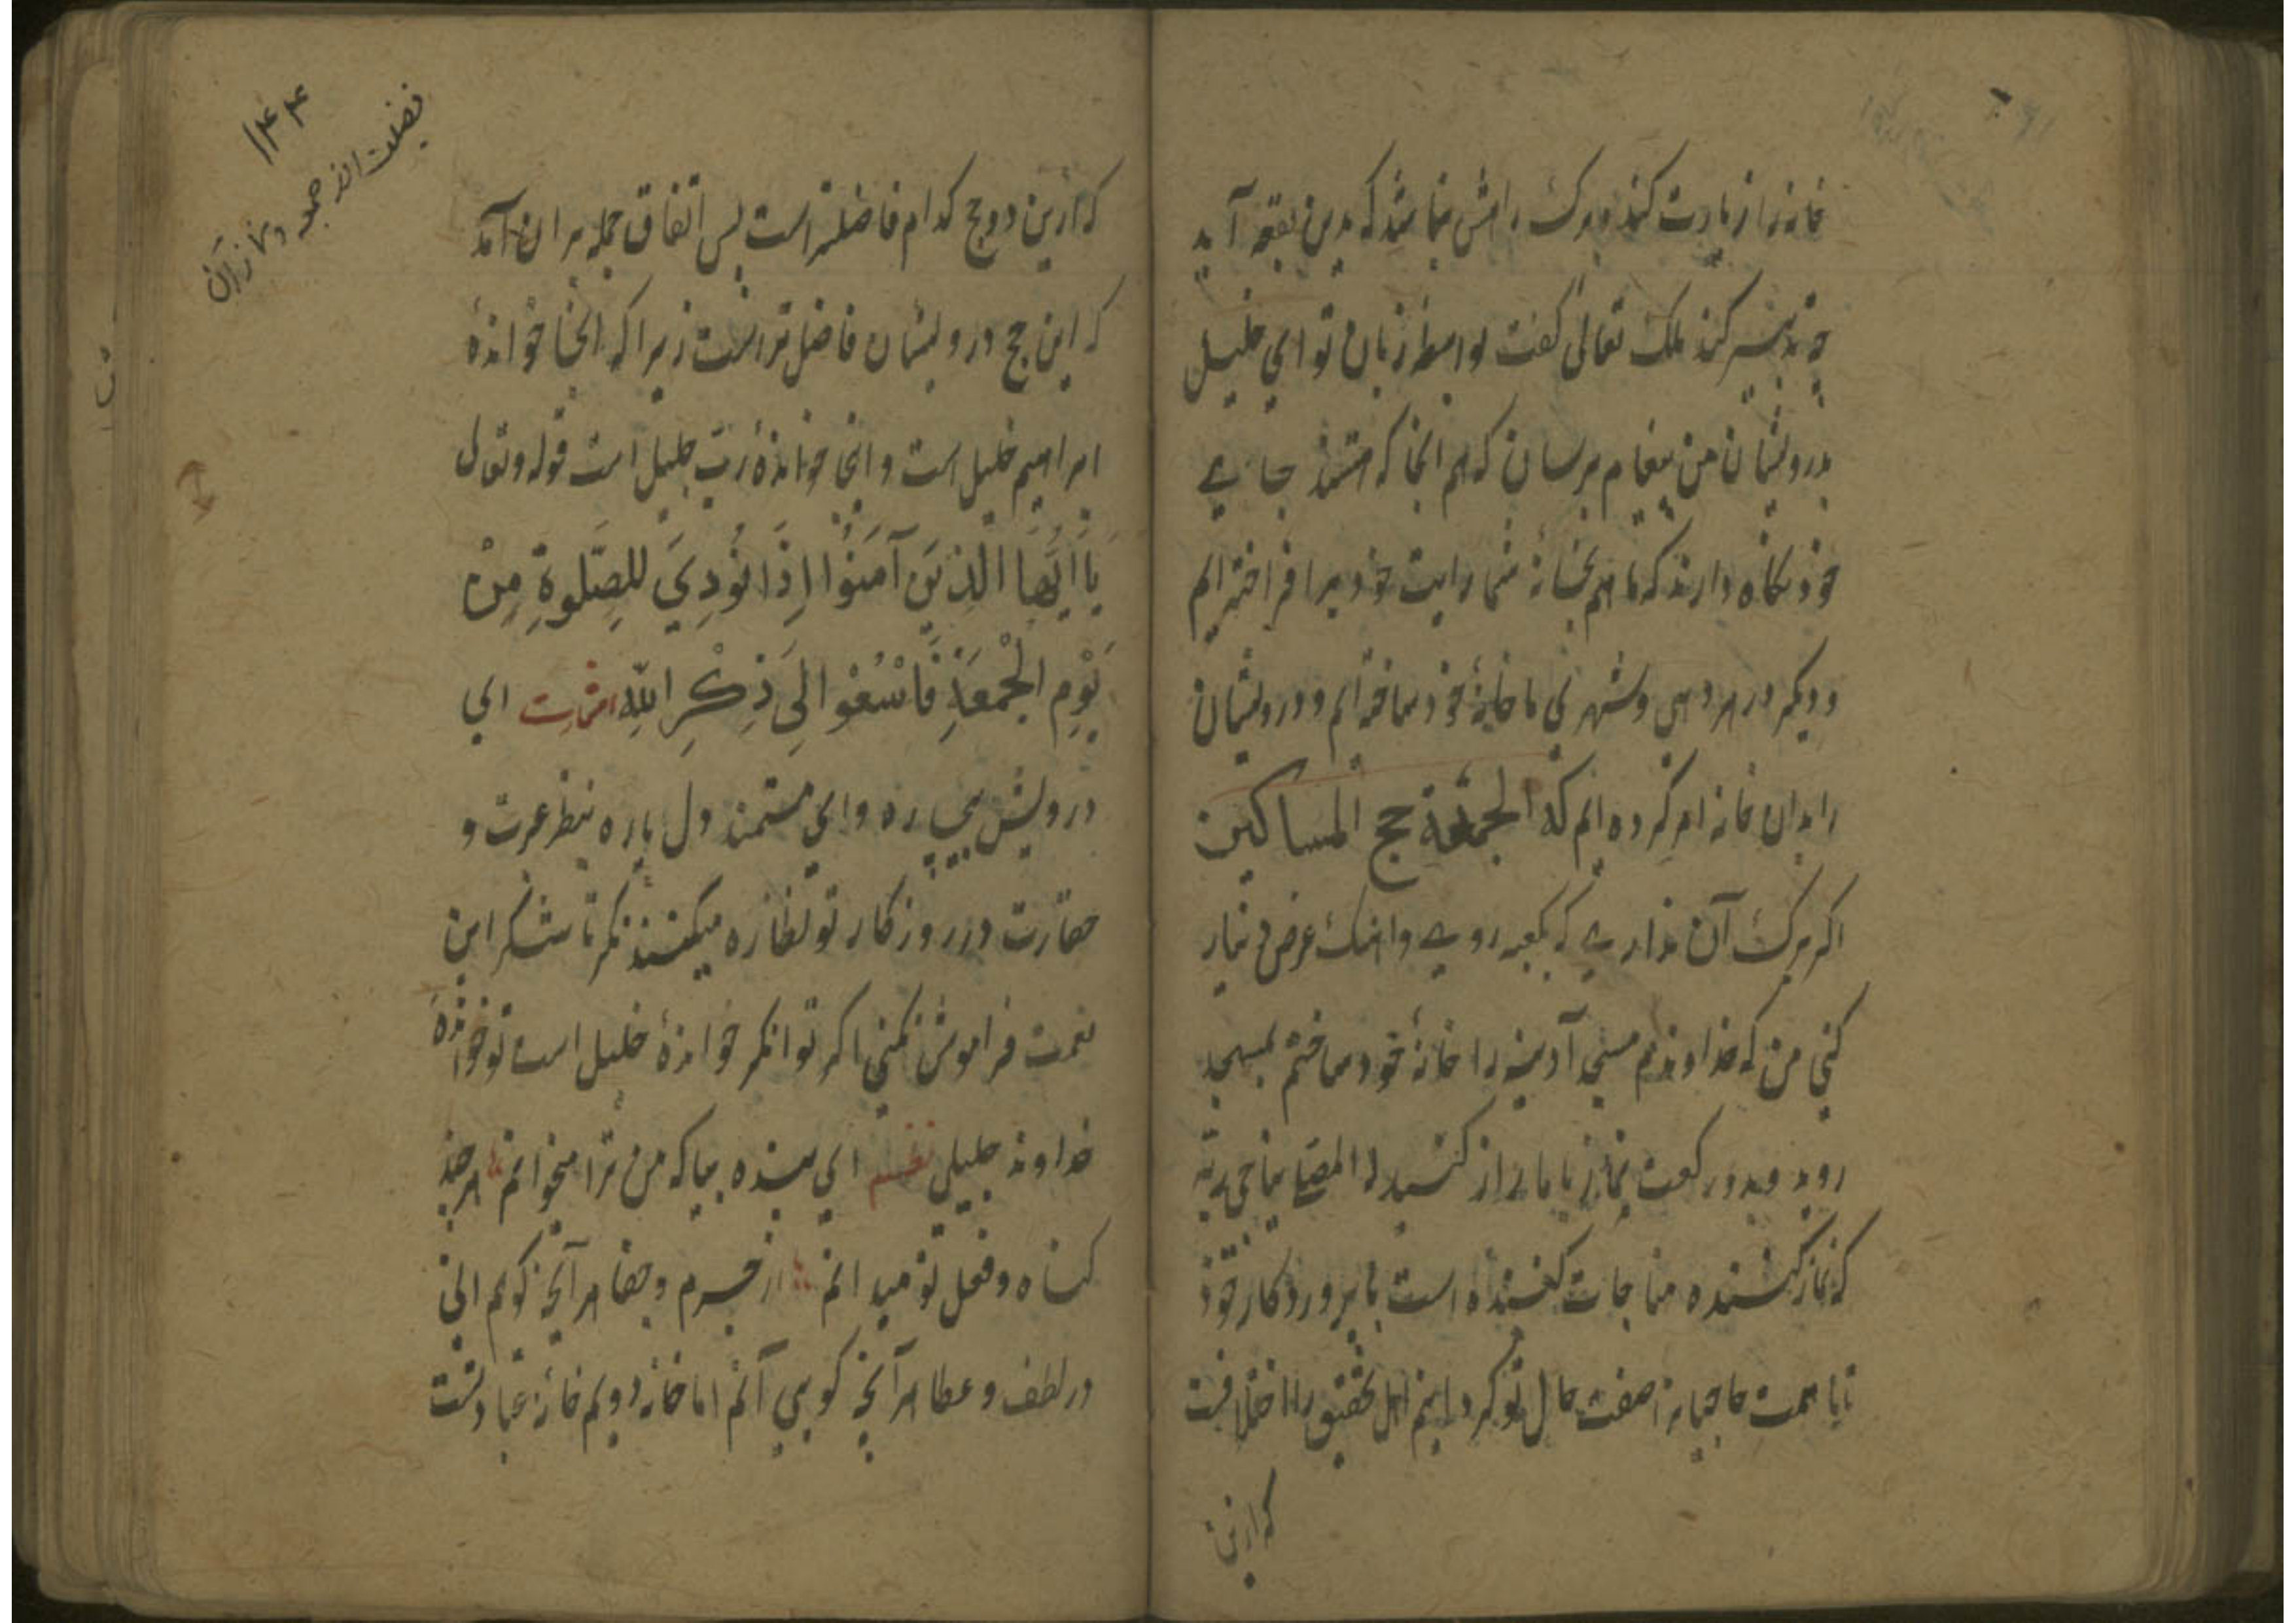 خانه را زیارت کند و برک راهش نباشد که بدین بقعه آید
چه تدبیر کند ملک تعالی گفت بواسطه زبان تو ای خلیل
بدرویشان من پیغام برسان که هم انجا که هستند جای
خود نکاه دارند که ما هم بخانهٔ شما رایت خود برافراخته‌ایم
و دیکر در هر دهی و شهری ما خانهٔ خود ساخته‌ایم و درویشان
را بدان خانه امر کرده‌ایم که الجمعة حج المساکین
اکر برک آن نداری که بکعبه روی وانک عرض نیاز
کنی من که خداوندم مسجد آدینه را خانهٔ خود ساختم بمسجد
روید و بدو رکعت نماز با ما راز کنید المصلی یناجی ربه
که نماز کننده مناجات کننده است با پروردکار خود
تا با همت حاجیان صفت حال تو کردانیم اهل تحقیق را اختلافست
که ازین
۱۴۴
فضیلت الروز جمعه و نماز آن
که ازین دو حج کدام فاضلتر است پس اتفاق جمله بر ان آمد
که این حج درویشان فاضل‌تر است زیرا که انجا خواندهٔ
ابراهیم خلیل است و اینجا خواندهٔ رب جلیل است قوله و تعالی
یَا اَیُّهَا الَّذِیْنَ آمَنُوْا اِذَا نُوْدِیَ لِلصَّلوٰةِ مِنْ
یَوْمِ الْجُمُعَةِ فَاسْعَوْا اِلَی ذِکْرِ اللهِ اشارت ای
درویش بیچاره وای مستمند دل پاره بنظر عبرت و
حقارت در روزکار تو نظاره میکنند نکر تا شکر این
نعمت فراموش نکنی اکر توانکر خواندهٔ خلیل است تو خواندهٔ
خداوند جلیلی نظم ای بنده بیا که من ترا میخوانم هرچند
کناه و فعل تو میدانم از جرم و جفا هر آنچه کویم انی
در لطف و عطا هر آنچه کویی آنم اما خانهٔ دویم خانهٔ عبادتست